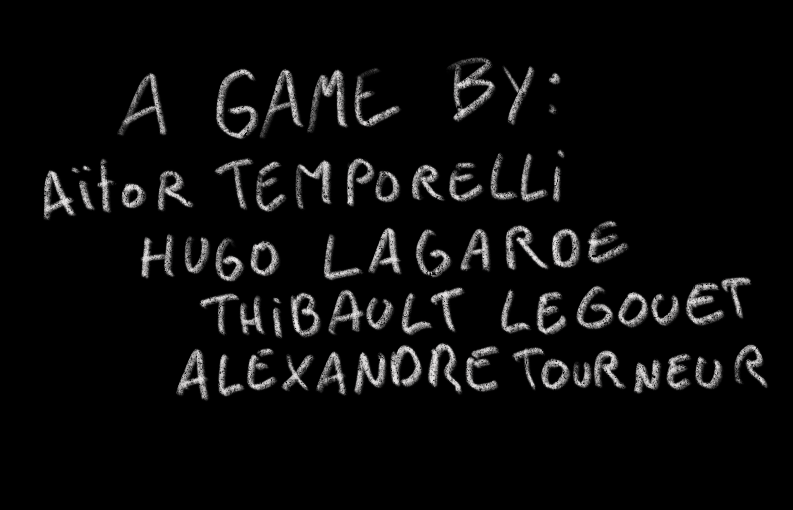 A GAME BY:
Aïtor TEMPORELLi
HUGO LAGARDE
THiBAULT LEGOUET
ALEXANDRE TOURNEUR